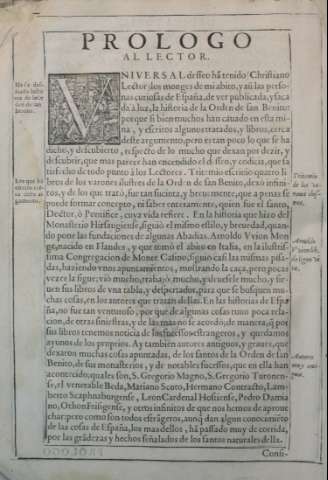 PROLOGO
AL LECTOR.
VNIVERSAL desseo hã tenido Christiano
Lector dos monges de mi abito, y aũ las perso-
nas curiosas de España, de ver publicada, y saca
da à luz, la historia de la Orden de san Benito:
porque si bien muchos han cauado en esta mi-
na, y escritos algunos tratados, y libros, cerca
deste argumento, pero es tan poco lo que se ha
dicho, y descubierto, respecto de lo mucho que dexan por dezir, y
descubrir, que mas parece han encendido el desseo, y codicia, que sa
tisfecho de todo punto à los Lectores. Tritemio escriuio quatro li
bros de los varones illustres de la Orden de san Benito, dexò infini-
tos, y de los que trata, fue tan sucinta, y breuemente, que a penas se
puede formar concepto, ni saber enteramente, quien fue el santo,
Doctor, ò Pontifice, cuya vida refiere. En la historia que hizo del
Monasterio Hirsaugiense, siguiò el mismo estilo, y breuedad, quan-
do pone las fundaciones de algunas Abadias. Arnoldo Vvion Mon
ge, nacido en Flandes, y que tomò el abito en Italia, en la ilustris-
tima Congregacion de Monte Casino, siguiò casi las mismas pisa-
das, haziendo vnos apuntamientos, mostrando la caça, pero pocas
vezes la sigue; viò mucho, trabajò mucho,
uen sus libros de vna tabla, y despertador, para que se busquen mu-
chas cosas, en los autores que tratan dellas. En las historias de Espa
ña, no fue tan venturoso, porque de algunas cosas tuuo poca rela-
cion, de otras siniestras, y de las mas no se acordò, de manera, que por
sus libros tenemos noticia de los sucessos estrangeros, y quedamos
ayunos de los proprios. Ay tambien autores antiguos, y graues, que
dexaron muchas cosas apuntadas, de los santos de la Orden de san
Benito, de sus monasterios, y de notables sucessos, que en ella han
acontecido; quales son, S. Gregorio Magno, S. Gregorio Turonen-
se, el venerable Beda, Mariano Scoto, Hermano Contracto, Lam-
berto Scaphnaburgense, Leon Cardenal Hostiense, Pedro Damia
no, Othon Frisigense, y otros infinitos de que nos hemos de aproue
char: pero como son todos estrãgeros, aunq̃ dan algun conocimiẽto
de las cosas de España, los mas dellos, hã passado muy de corrida,
por las grãdezas, y hechos señalados de los santos naturales della.
Consi-